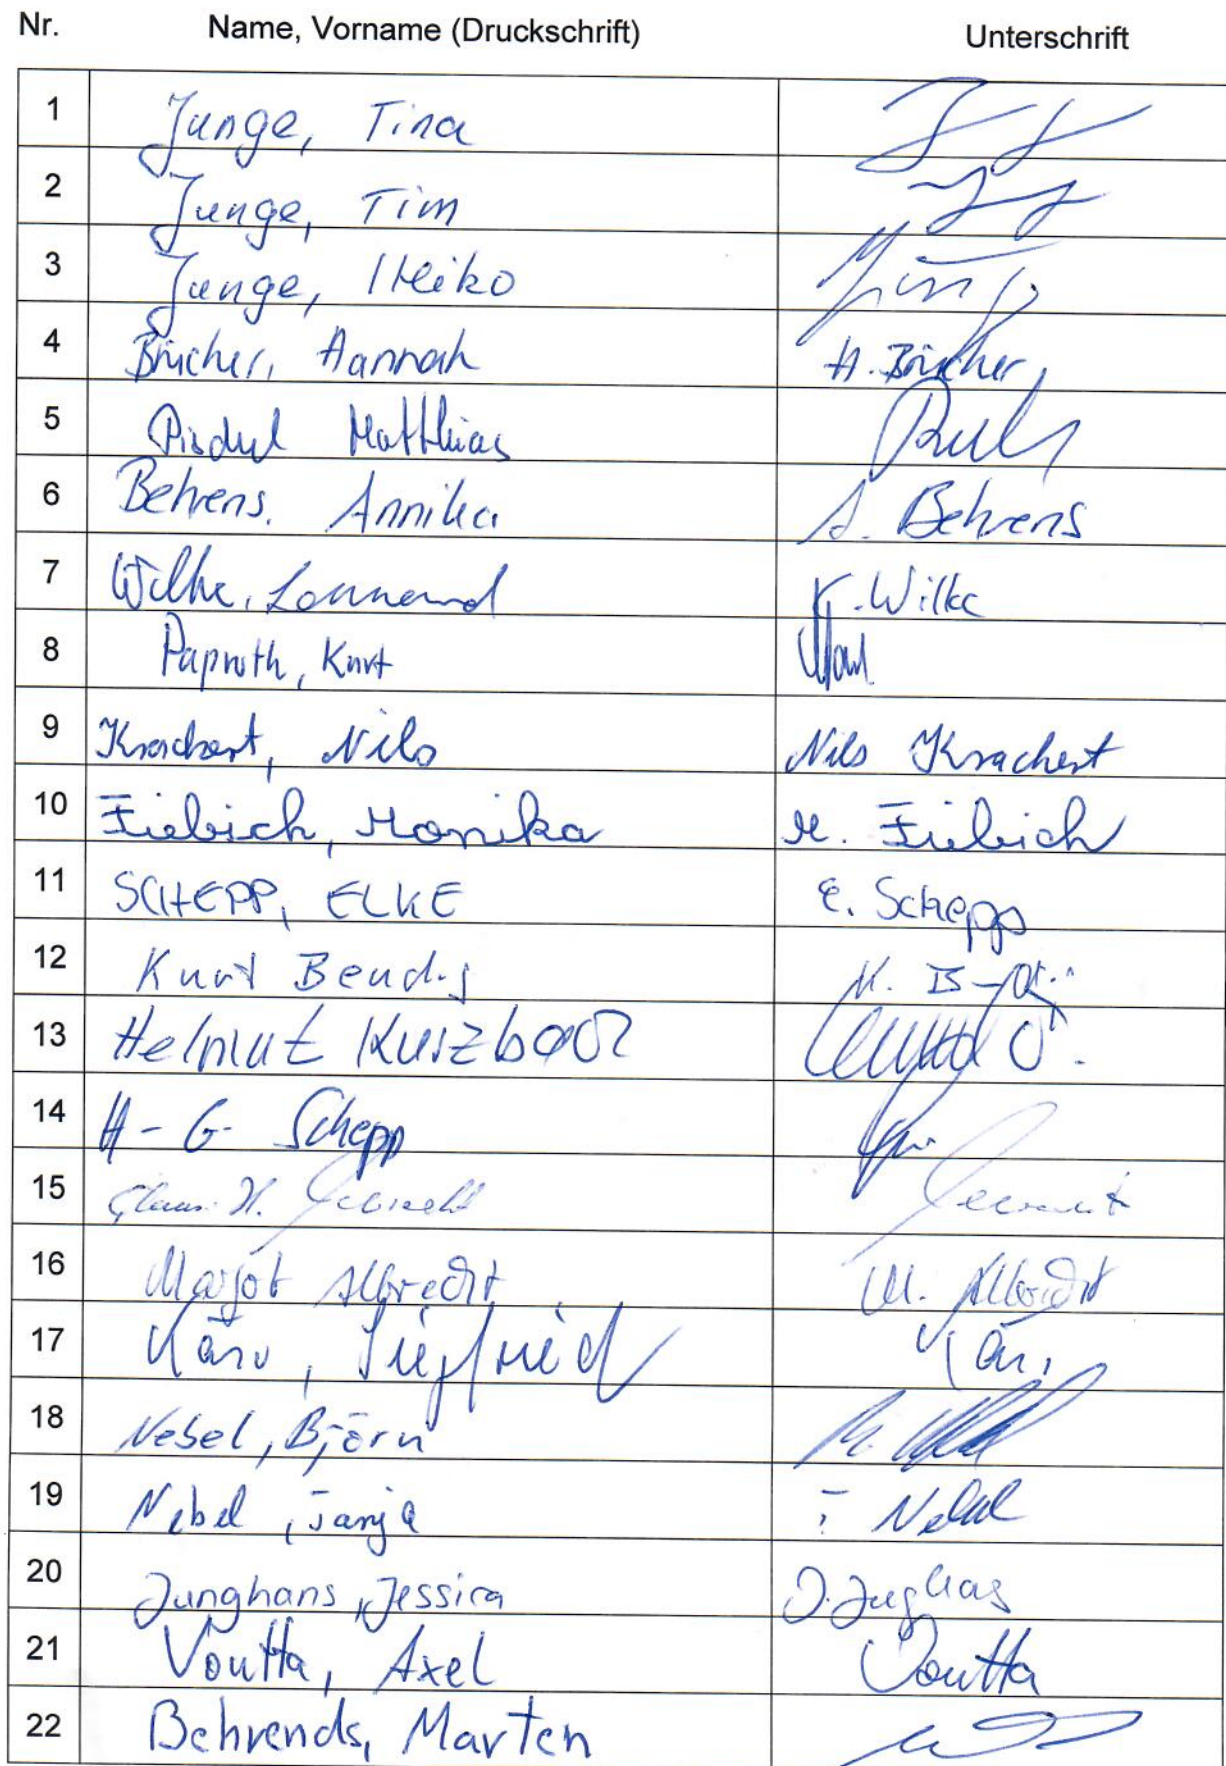 Nr. Name, Vorname (Druckschrift) Unterschrift
1 Junge, Tina
2 Junge, Tim
3 Junge, Heiko
4 Brücher, Hannah H. Brücher
5 Matthias
6 Behrens, Annika A. Behrens
7 Wilke, K. Wilke
8 Paproth, Kurt
9 Krachert, Nils Nils Krachert
10 Fiebich, Monika M. Fiebich
11 SCHEPP, ELKE E. Schepp
12 Kurt
13 Helmut
14 H-G. Schepp
15 H.
16 Margot Albrecht M. Albrecht
17 Siegfried
18 Nebel, Björn
19 Nebel, Tanja T Nebel
20 Junghans, Jessica J. Junghans
21 Voutta, Axel Voutta
22 Behrends, Marten